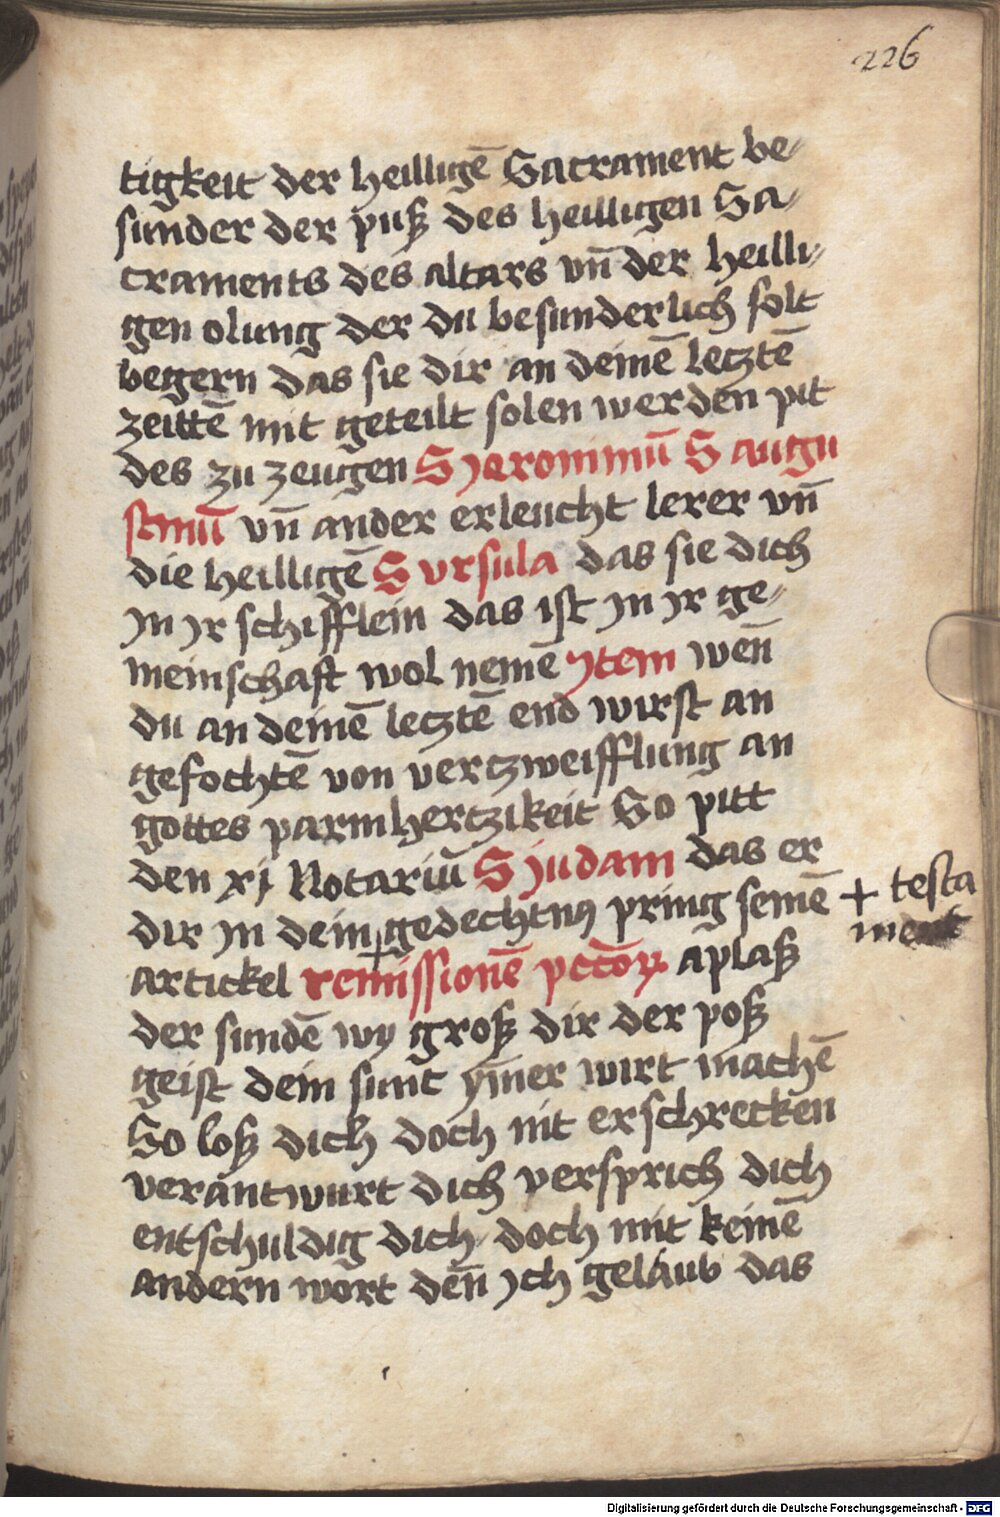 226
tigkeit der heilligē Sacrament be-
sunder der puß des heilligen Sa-
craments des altars vn̄ der heilli-
gen olung der du besunderlich solt
begern das sie dir an deinē letztē
zeittē mit geteilt solen werden pit
des zu zeugen S Jeronimū S augu
stinū vn̄ ander erleucht lerer vn̄
die heilligē S vrsula das sie dich
Jn Jr schifflein das ist Jn Jr ge-
meinschaft wol nemē Jtem wen̄
du an deinē letztē end wirst an
gefochtē von vertzweifflung an
gottes parmhertzikeit So pitt
den xj Notariū S Judam das er
dir Jn dein gedechtnꝰ pring seinē + testa
ment
artickel remissionē pctōꝝ aplaß
der sundē wy groß dir der poß
geist dein sunt ym̄er wirt machē
So loß dich doch nit erschrecken
verantwurt dich versprich dich
entschuldig dich doch mit keinē
andern wort den̄ Jch gelaub das
Digitalisierung gefördert durch die Deutsche Forschungsgemeinschaft - DFG